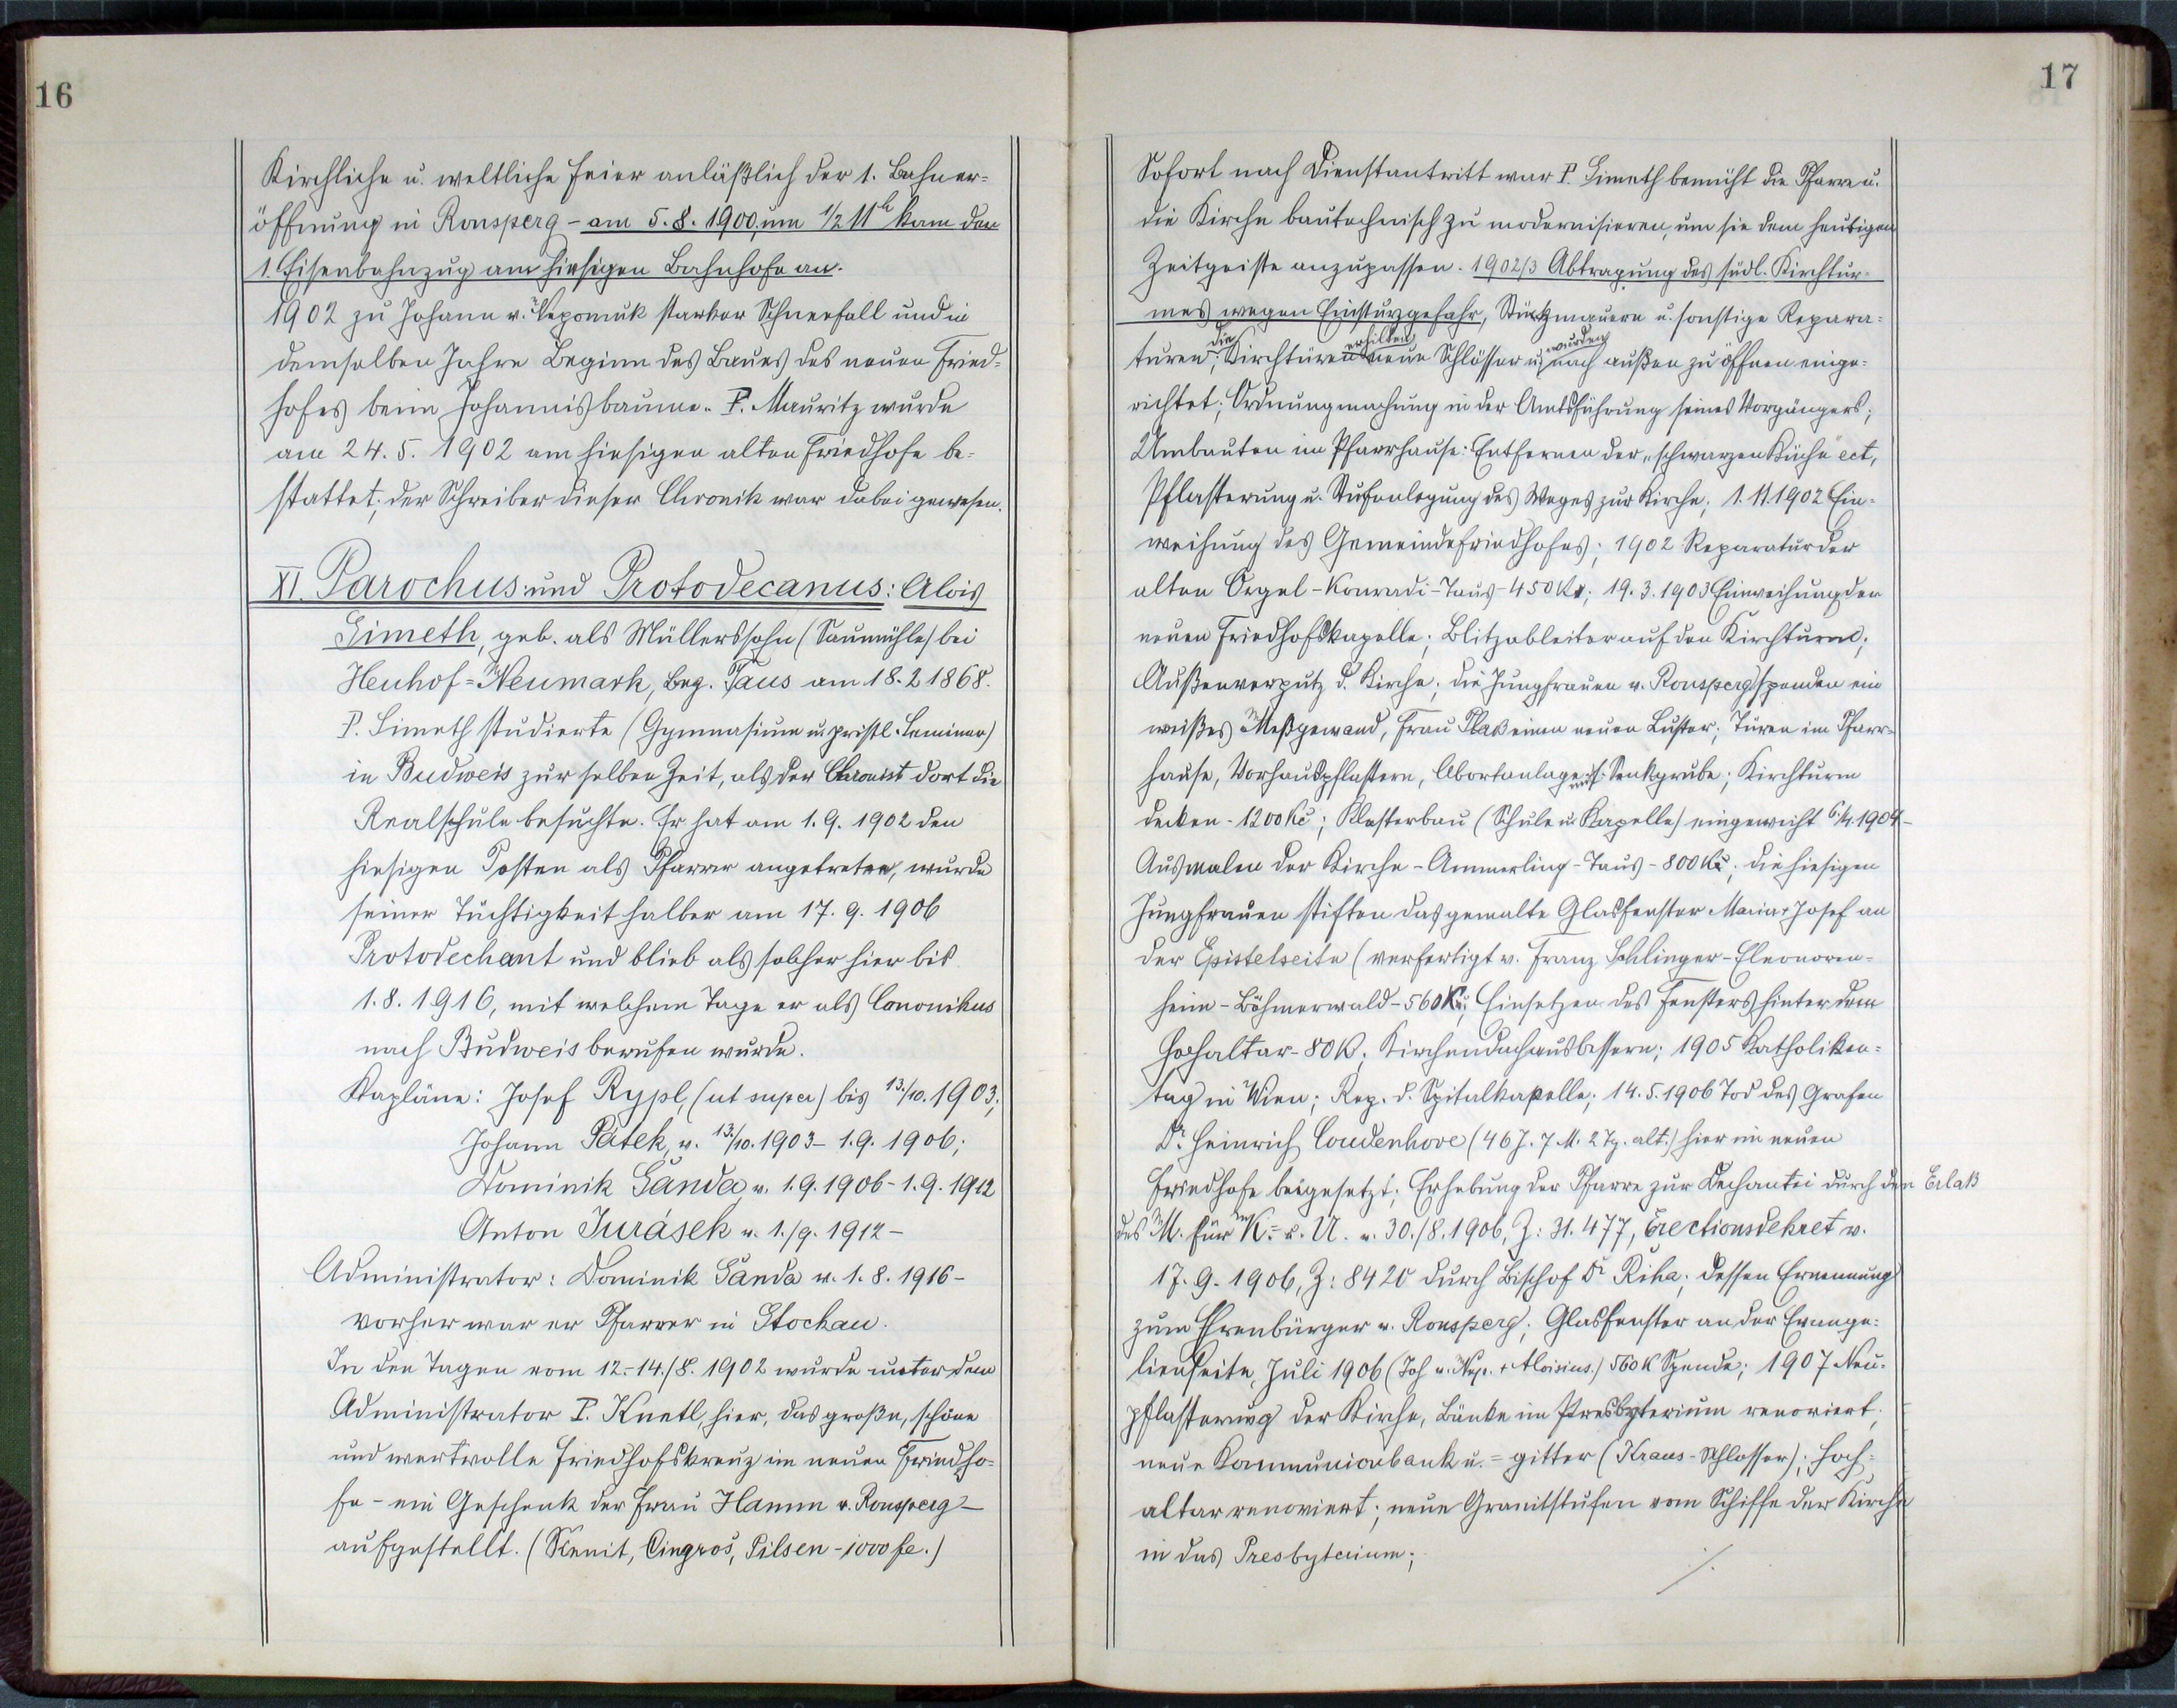 16
Kirchliche u. weltliche Feier anläßlich der 1. Bahner-
öffnung in Ronsperg - am 5. 8. 1900, um 1/2 11h kam der
1. Eisenbahnzug am hiesigen Bahnhofe an.
1902 zu Johann v. Nepomuk starker Schneefall und in
demselben Jahre Beginn des Baues des neuen Fried-
hofes beim Johannisbaume. P. Mauritz wurde
am 24. 5. 1902 am hiesigen alten Friedhofe be-
stattet; der Schreiber dieser Chronik war dabei gewesen.
XI. Parochus und Protodecanus: Alois
Simeth, geb. als Müllerssohn (Säumühle) bei
Heuhof-Neumark, Bez. Taus am 18. 2 1868.
P. Simeth studierte (Gymnasium u. pristl. Seminar)
in Budweis zur selben Zeit, als der Chronist dort die
Realschule besuchte. Er hat am 1. 9. 1902 den
hiesigen Posten als Pfarrer angetreten, wurde
seiner Tüchtigkeit halber am 17. 9. 1906
Protodechant und blieb als solcher hier bis
1. 8. 1916, mit welchem Tage er als Canonikus
nach Budweis berufen wurde.
Kapläne: Josef Rypl, (ut supra) bis 13./10. 1903;
Johann Pátek, v. 13./10. 1903 - 1. 9. 1906;
Dominik Šanda, v. 1. 9. 1906 - 1. 9. 1912
Anton Jurásek v. 1./9. 1912 -
Administrator: Dominik Šanda v. 1. 8. 1916 -
vorher war er Pfarrer in Stockau.
In den Tagen vom 12.-14./8. 1902 wurde unter dem
Administrator P. Knetl, hier, das große, schöne
und wertvolle Friedhofskreuz im neuen Friedho-
fe - ein Geschenk der Frau Hamm v. Ronsperg -
aufgestellt. (Sienit, Cingroš, Pilsen - 1000 fl.)
17
Sofort nach Dienstantritt war P. Simeth bemüht die Pfarre u.
die Kirche bautechnisch zu modernisieren, um sie dem heutigen
Zeitgeiste anzupassen. 1902/3 Abtragung des südl. Kirchtur-
mes wegen Einsturzgefahr, Stützmauern u. sonstige Repara-
turen; die Kirchtüren erhielten neue Schlösser u. wurden nach außen zu öffnen einge-
richtet; Ordnungmachung in der Amtsführung seines Vorgängers;
Umbauten im Pfarrhause: Entfernen der "schwarzen Küche" ect,
Pflasterung u. Stufenlegung des Weges zur Kirche; 1. 11. 1902 Ein-
weihung des Gemeindefriedhofes; 1902 Reparatur der
alten Orgel - Konradi - Taus - 450 K; 19. 3. 1903 Einweihung der
neuen Friedhofskapelle; Blitzableiter auf den Kirchturm;
Außenverputz d. Kirche; die Jungfrauen v. Ronsperg spenden ein
weißes Meßgewand, Frau einen neuen Luster; Türen im Pfarr-
hause, Vorhauspflastern, Abortanlage mit Senkgrube; Kirchturm
decken - 1200 Kč; Klosterbau (Schule u. Kapelle) eingeweiht 6./4. 1904 -
Ausmalen der Kirche - Ammerling - Taus - 800 K; die hiesigen
Jungfrauen stiften das gemalte Glasfenster Maria + Josef an
der Epistelseite (verfertigt v. Franz Schlinger - Eleonoren-
heim - Böhmerwald - 560 K; Einsetzen des Fensters hinter dem
Hochaltar - 80 K; Kirchendachausbessern; 1905 Katholiken-
tag in Wien; Rep. d. Spitalkapelle; 14. 5. 1906 Tod des Grafen
Dr. Heinrich Coudenhove (46 J. 7 M. 2 Tg. alt.) hier im neuen
Friedhofe beigesetzt; Erhebung der Pfarre zur Dechantei durch den Erlaß
des M. für K.- u. U. v. 30./8. 1906, Z: 31.477, Erectionsdekret v.
17. 9. 1906, Z: 8420 durch Bischof Dr Řiha; dessen Ernennung
zum Ehrenbürger v. Ronsperg; Glasfenster an der Evange-
lienseite, Juli 1906 (Joh v. Nep. + Aloisius.) 560 K Spende; 1907 Neu-
pflasterung der Kirche, Bänke im Presbyterium renoviert;
neue Kommunionbank u. -gitter (Kraus - Schlosser); Hoch-
altar renoviert; neue Granitstufen vom Schiffe der Kirche
in das Presbyterium;
./.